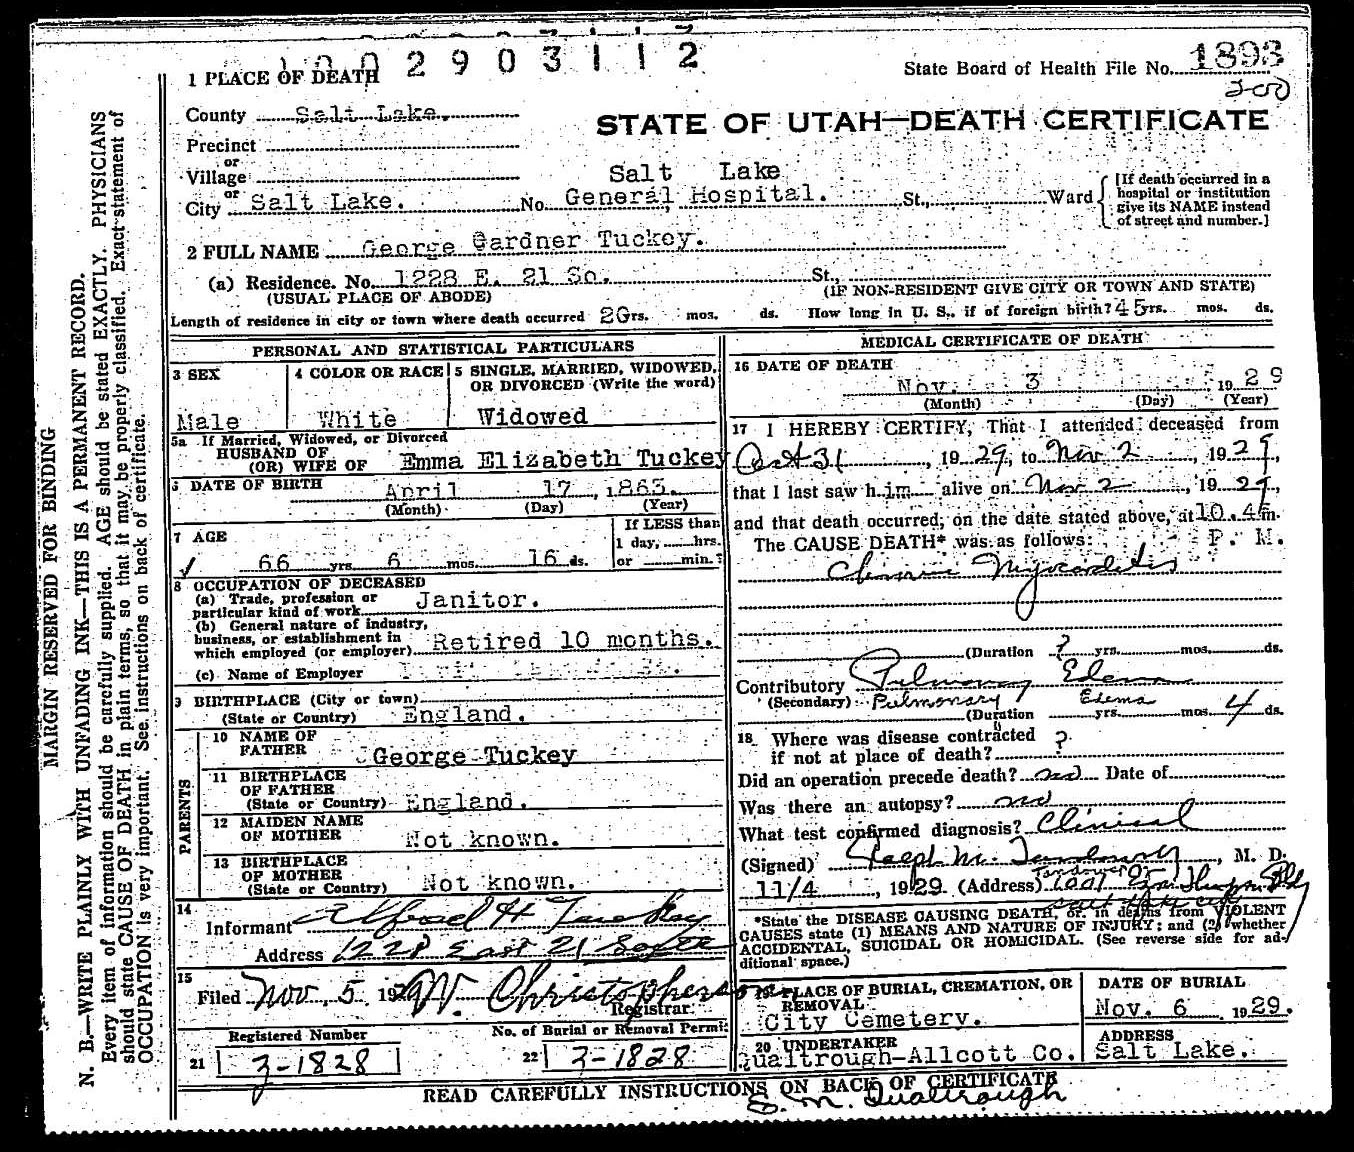 2 9 0 3 1 1 2
1 PLACE OF DEATH
State Board of Health File No. 1893
200
County Salt Lake.
STATE OF UTAH—DEATH CERTIFICATE
Precinct
or
Village
or
City Salt Lake. No. Salt Lake General Hospital. St., Ward
[If death occurred in a hospital or institution give its NAME instead of street and number.]
2 FULL NAME George Gardner Tuckey.
(a) Residence. No. 1228 E. 21 So. St.,
(USUAL PLACE OF ABODE) (IF NON-RESIDENT GIVE CITY OR TOWN AND STATE)
Length of residence in city or town where death occurred 20 yrs. mos. ds. How long in U. S., if of foreign birth? 45 yrs. mos. ds.
PERSONAL AND STATISTICAL PARTICULARS
3 SEX
Male
4 COLOR OR RACE
White
5 SINGLE, MARRIED, WIDOWED, OR DIVORCED (Write the word)
Widowed
5a If Married, Widowed, or Divorced
HUSBAND OF
(OR) WIFE OF Emma Elizabeth Tuckey
6 DATE OF BIRTH April 17, 1863.
(Month) (Day) (Year)
7 AGE
66 yrs. 6 mos. 16 ds.
If LESS than
1 day, hrs.
or min.?
8 OCCUPATION OF DECEASED
(a) Trade, profession or
particular kind of work Janitor.
(b) General nature of industry,
business, or establishment in
which employed (or employer) Retired 10 months.
(c) Name of Employer
9 BIRTHPLACE (City or town)
(State or Country) England.
PARENTS
10 NAME OF
FATHER George Tuckey
11 BIRTHPLACE
OF FATHER
(State or Country) England.
12 MAIDEN NAME
OF MOTHER Not known.
13 BIRTHPLACE
OF MOTHER
(State or Country) Not known.
14
Informant Alfred H Tuckey
Address 1228 East 21 South
15
Filed Nov. 5 1929 W. Christopherson
Registrar.
Registered Number
21 3-1828
No. of Burial or Removal Permit
22 3-1828
MEDICAL CERTIFICATE OF DEATH
16 DATE OF DEATH
Nov. 3 1929
(Month) (Day) (Year)
17 I HEREBY CERTIFY, That I attended deceased from
Oct 31, 1929, to Nov 2, 1929,
that I last saw him alive on Nov 2, 1929,
and that death occurred, on the date stated above, at 10.45m.
The CAUSE DEATH* was as follows: P. M.
Chronic Myocarditis
(Duration ? yrs. mos. ds.
Contributory Pulmonary Edema
(Secondary) Pulmonary Edema
(Duration yrs. mos. 4 ds.
18 Where was disease contracted
if not at place of death? ?
Did an operation precede death? no Date of
Was there an autopsy? no
What test confirmed diagnosis? Clinical
(Signed) Ralph M. Tandowsky, M. D.
11/4, 1929 (Address)
*State the DISEASE CAUSING DEATH, or, in deaths from VIOLENT
CAUSES state (1) MEANS AND NATURE OF INJURY; and (2) whether
ACCIDENTAL, SUICIDAL OR HOMICIDAL. (See reverse side for additional space.)
19 PLACE OF BURIAL, CREMATION, OR REMOVAL
City Cemetery.
DATE OF BURIAL
Nov. 6 1929.
20 UNDERTAKER
Qualtrough-Allcott Co.
ADDRESS
Salt Lake.
READ CAREFULLY INSTRUCTIONS ON BACK OF CERTIFICATE
S. M. Qualtrough
MARGIN RESERVED FOR BINDING
N. B.—WRITE PLAINLY WITH UNFADING INK—THIS IS A PERMANENT RECORD.
Every item of information should be carefully supplied. AGE should be stated EXACTLY. PHYSICIANS
should state CAUSE OF DEATH in plain terms, so that it may be properly classified. Exact statement of
OCCUPATION is very important. See instructions on back of certificate.